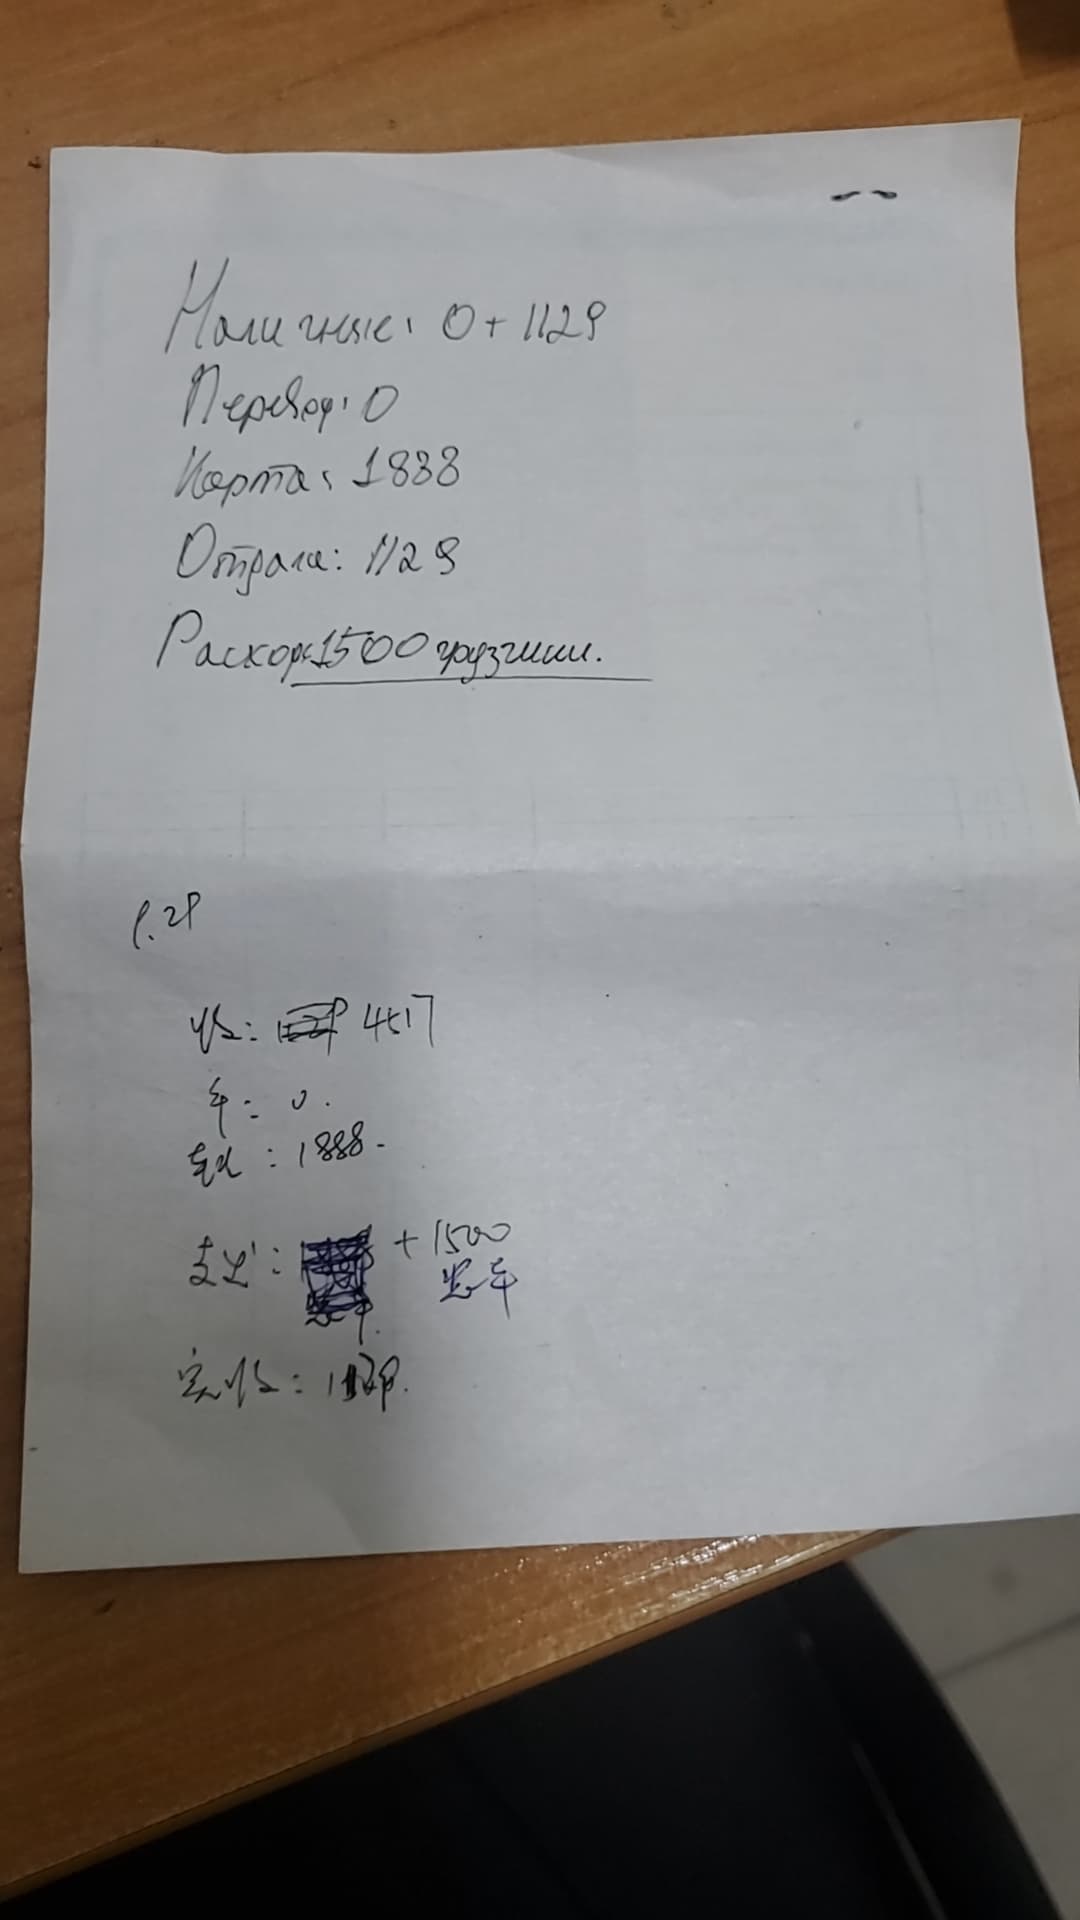 Наличные: 0 + 1129
Перевод: 0
Карта: 1888
Отдала: 1129
Расход: 1500 грузчики.
收: 4517
卡: 0.
1888.
支出: + 1500
装车
实收: 1129.